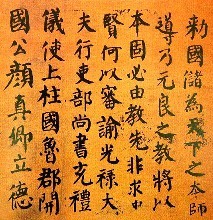 勅國儲為天下之本師
導乃元良之教將以
本固必由教先非求中
賢何以審諭光祿大
夫行吏部尚書充禮
儀使上柱國魯郡開
國公顏真卿立德